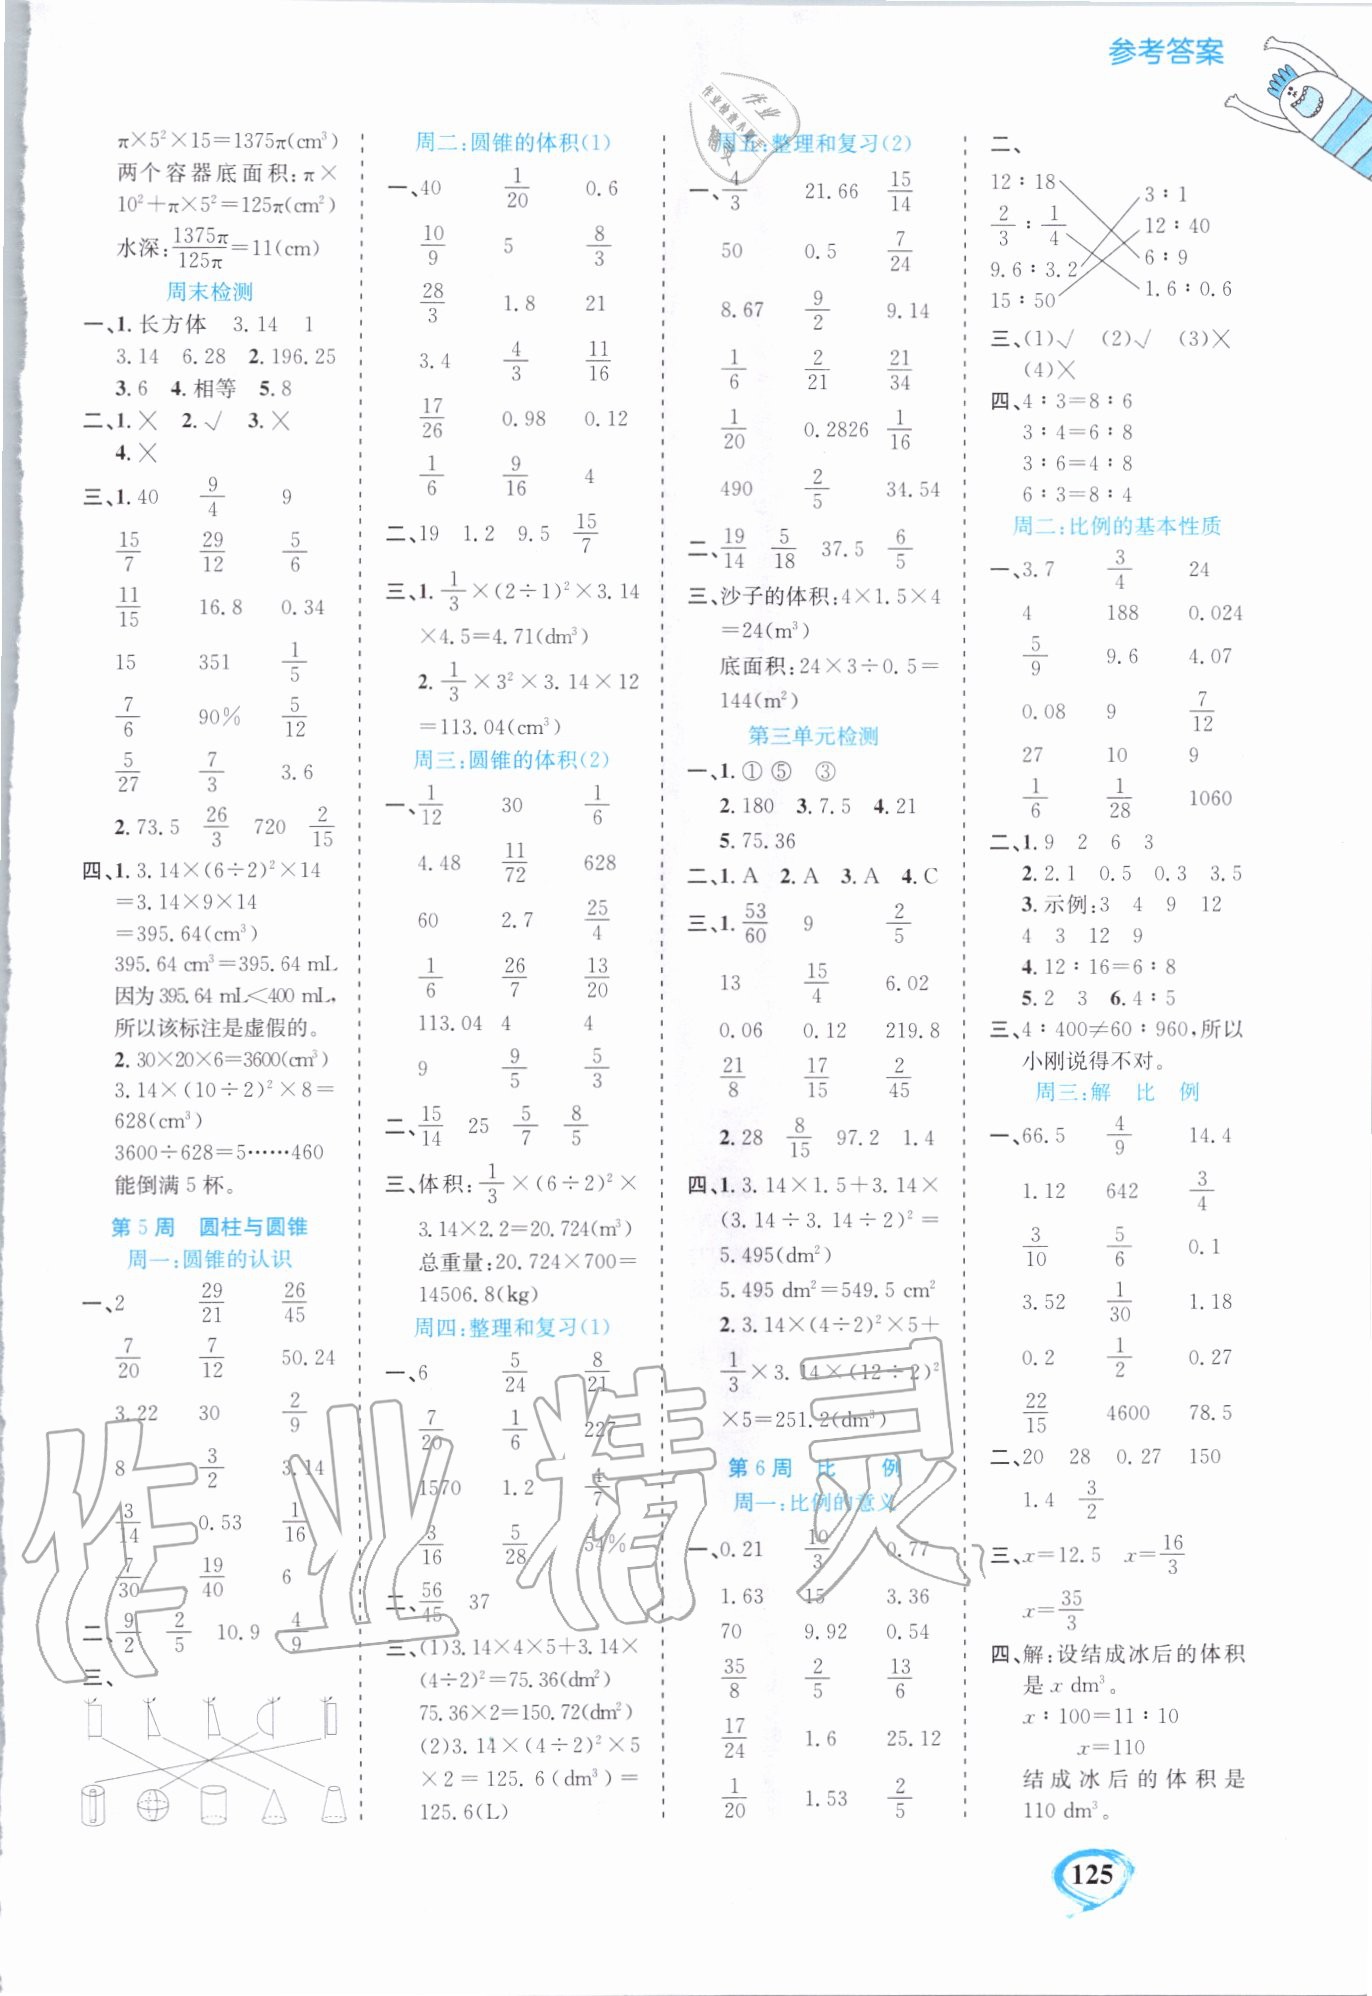 参考答案
π×5²×15=1375π(cm³)
两个容器底面积:π×
10²+π×5²=125π(cm²)
水深:1375π/125π=11(cm)
周末检测
一、1.长方体 3.14 1
3.14 6.28 2.196.25
3.6 4.相等 5.8
二、1.× 2.√ 3.×
4.×
三、1.40 9/4 9
15/7 29/12 5/6
11/15 16.8 0.34
15 351 1/5
7/6 90% 5/12
5/27 7/3 3.6
2.73.5 26/3 720 2/15
四、1.3.14×(6÷2)²×14
=3.14×9×14
=395.64(cm³)
395.64 cm³=395.64 mL
因为395.64 mL<400 mL,
所以该标注是虚假的。
2.30×20×6=3600(cm³)
3.14×(10÷2)²×8=
628(cm³)
3600÷628=5……460
能倒满5杯。
第5周 圆柱与圆锥
周一:圆锥的认识
一、2 29/21 26/45
7/20 7/12 50.24
3.22 30 2/9
8 3/2 3.14
3/14 0.53 1/16
7/30 19/40 6
二、9/2 2/5 10.9 4/9
三、
周二:圆锥的体积(1)
一、40 1/20 0.6
10/9 5 8/3
28/3 1.8 21
3.4 4/3 11/16
17/26 0.98 0.12
1/6 9/16 4
二、19 1.2 9.5 15/7
三、1.1/3×(2÷1)²×3.14
×4.5=4.71(dm³)
2.1/3×3²×3.14×12
=113.04(cm³)
周三:圆锥的体积(2)
一、1/12 30 1/6
4.48 11/72 628
60 2.7 25/4
1/6 26/7 13/20
113.04 4 4
9 9/5 5/3
二、15/14 25 5/7 8/5
三、体积:1/3×(6÷2)²×
3.14×2.2=20.724(m³)
总重量:20.724×700=
14506.8(kg)
周四:整理和复习(1)
一、6 5/24 8/21
7/20 1/6 227
1570 1.2 4/7
3/16 5/28 54%
二、56/45 37
三、(1)3.14×4×5+3.14×
(4÷2)²=75.36(dm²)
75.36×2=150.72(dm²)
(2)3.14×(4÷2)²×5
×2=125.6(dm³)=
125.6(L)
周五:整理和复习(2)
一、4/3 21.66 15/14
50 0.5 7/24
8.67 9/2 9.14
1/6 2/21 21/34
1/20 0.2826 1/16
490 2/5 34.54
二、19/14 5/18 37.5 6/5
三、沙子的体积:4×1.5×4
=24(m³)
底面积:24×3÷0.5=
144(m²)
第三单元检测
一、1.①⑤ ③
2.180 3.7.5 4.21
5.75.36
二、1.A 2.A 3.A 4.C
三、1.53/60 9 2/5
13 15/4 6.02
0.06 0.12 219.8
21/8 17/15 2/45
2.28 8/15 97.2 1.4
四、1.3.14×1.5+3.14×
(3.14÷3.14÷2)²=
5.495(dm²)
5.495 dm²=549.5 cm²
2.3.14×(4÷2)²×5+
1/3×3.14×(12÷2)²
×5=251.2(dm³)
第6周 比 例
周一:比例的意义
一、0.21 10/3 0.77
1.63 15 3.36
70 9.92 0.54
35/8 2/5 13/6
17/24 1.6 25.12
1/20 1.53 2/5
二、
12∶18
2/3∶1/4
9.6∶3.2
15∶50
3∶1
12∶40
6∶9
1.6∶0.6
三、(1)√ (2)√ (3)×
(4)×
四、4∶3=8∶6
3∶4=6∶8
3∶6=4∶8
6∶3=8∶4
周二:比例的基本性质
一、3.7 3/4 24
4 188 0.024
5/9 9.6 4.07
0.08 9 7/12
27 10 9
1/6 1/28 1060
二、1.9 2 6 3
2.2.1 0.5 0.3 3.5
3.示例:3 4 9 12
4 3 12 9
4.12∶16=6∶8
5.2 3 6.4∶5
三、4∶400≠60∶960,所以
小刚说得不对。
周三:解 比 例
一、66.5 4/9 14.4
1.12 642 3/4
3/10 5/6 0.1
3.52 1/30 1.18
0.2 1/2 0.27
22/15 4600 78.5
二、20 28 0.27 150
1.4 3/2
三、x=12.5 x=16/3
x=35/3
四、解:设结成冰后的体积
是x dm³。
x∶100=11∶10
x=110
结成冰后的体积是
110 dm³。
125
作业精灵